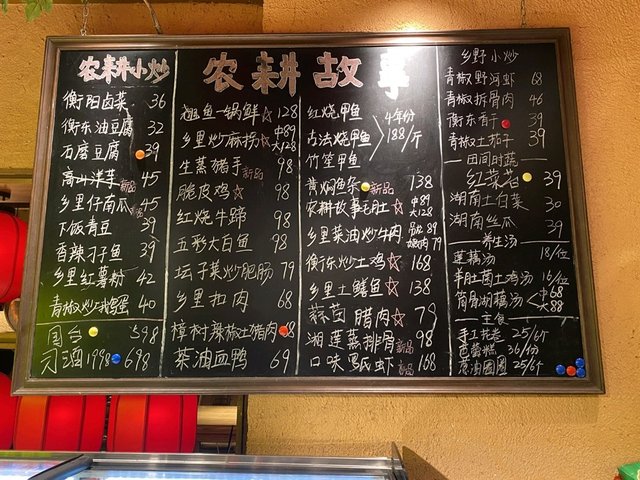 农耕小炒
衡阳卤菜 36
衡东油豆腐 32
石磨豆腐 39
高山洋芋 新品 45
乡里仔南瓜 45
下饭青豆 39
香辣刁子鱼 39
乡里红薯粉 42
青椒炒鸡蛋 40
国台 598
习酒1998 698
农耕故事
翘鱼一锅鲜☆128
乡里炒麻拐☆中89 大128
生蒸猪手 98
脆皮鸡☆ 98
红烧牛蹄 98
五彩大白鱼 98
坛子菜炒肥肠 79
乡里扣肉 68
樟树辣椒土猪肉 68
茶油血鸭 69
红烧甲鱼
古法烧甲鱼 4年份 188/斤
竹笙甲鱼
黄焖鱼杂 新品 138
农耕故事毛肚☆中89 大128
乡里菜油炒牛肉 89 79
衡东炒土鸡☆168
乡里土鳝鱼☆138
蒜苗腊肉☆ 79
湘莲蒸排骨 新品 98
口味罗氏虾 新品 168
乡野小炒
青椒野河虾 68
青椒拆骨肉 46
衡东香干 39
青椒土茄子 39
一田间时蔬一
红菜苔 39
湖南土白菜 30
湖南丝瓜 39
一养生汤
莲藕汤 18/位
羊肚菌土鸡汤 16/位
筒骨湖藕汤 中68 大88
一主食
手工花卷 25/6个
芭蕾糕 36/份
葱油圈圈 25/6个